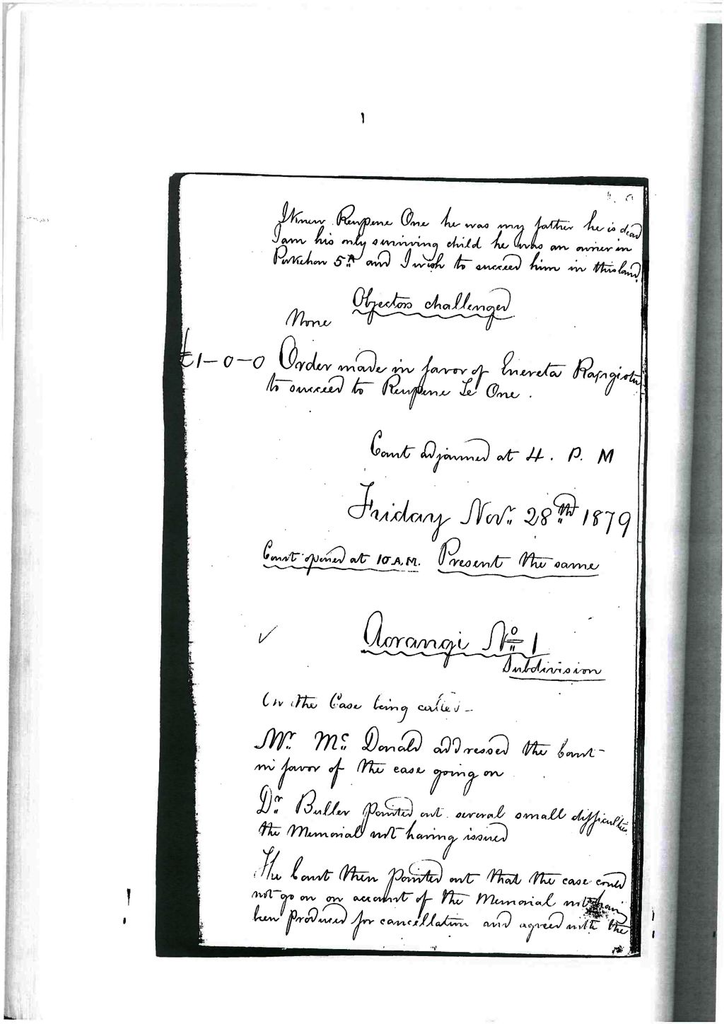 I knew Reupene One he was my father he is dead
I am his only surviving child he was an owner in
Pukehou 5A and I wish to succeed him in this land
Objectors challenged
None
£1-0-0 Order made in favor of Enereta Rangiotu
to succeed to Reupene Te One.
Court adjourned at 4. P. M
Friday Nov. 28th 1879
Court opened at 10 A.M. Present the same
Aorangi No 1
Subdivision
On the Case being called -
Mr. McDonald addressed the Court
in favor of the case going on
Dr. Buller pointed out several small difficulties
the Memorial not having issued
The Court then pointed out that the case could
not go on on account of the Memorial not having
been produced for cancellation and agreed with the